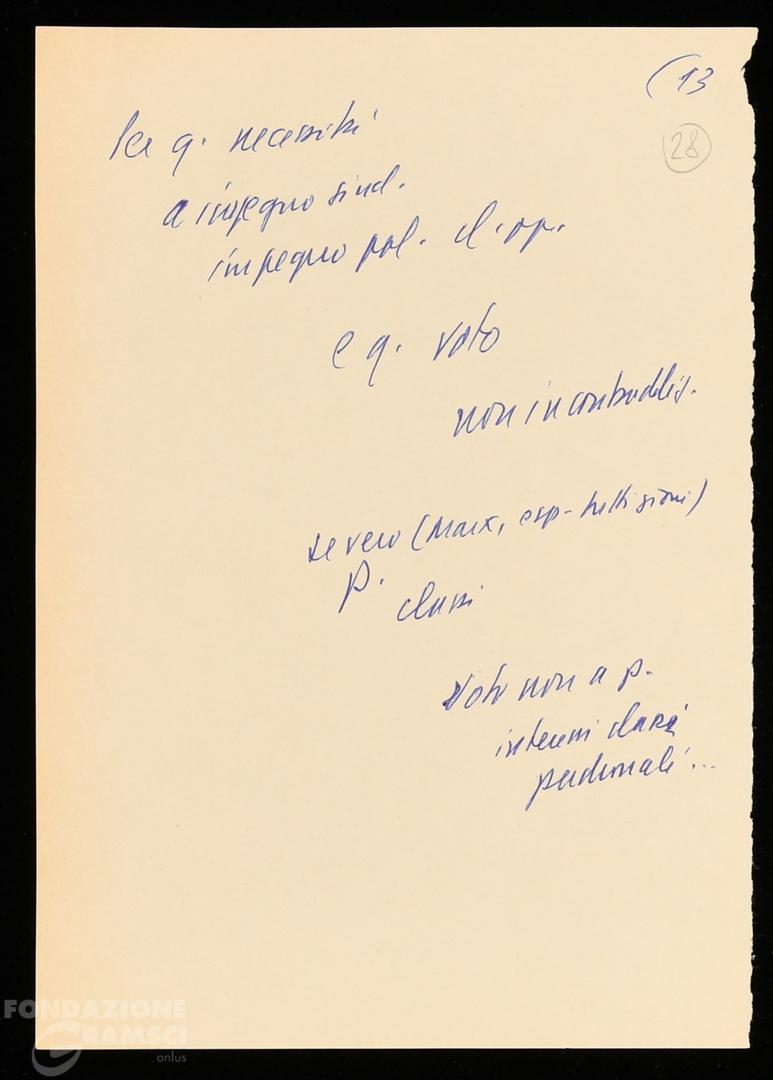 (13
28
Per q. necessità
a impegno sind.
impegno pol. cl. op.
e q. voto
non in contraddiz.
se vero (Marx, esp-
p.
classi
Voto non a p.
interessi classi
padronali...
FONDAZIONE
GRAMSCI
onlus